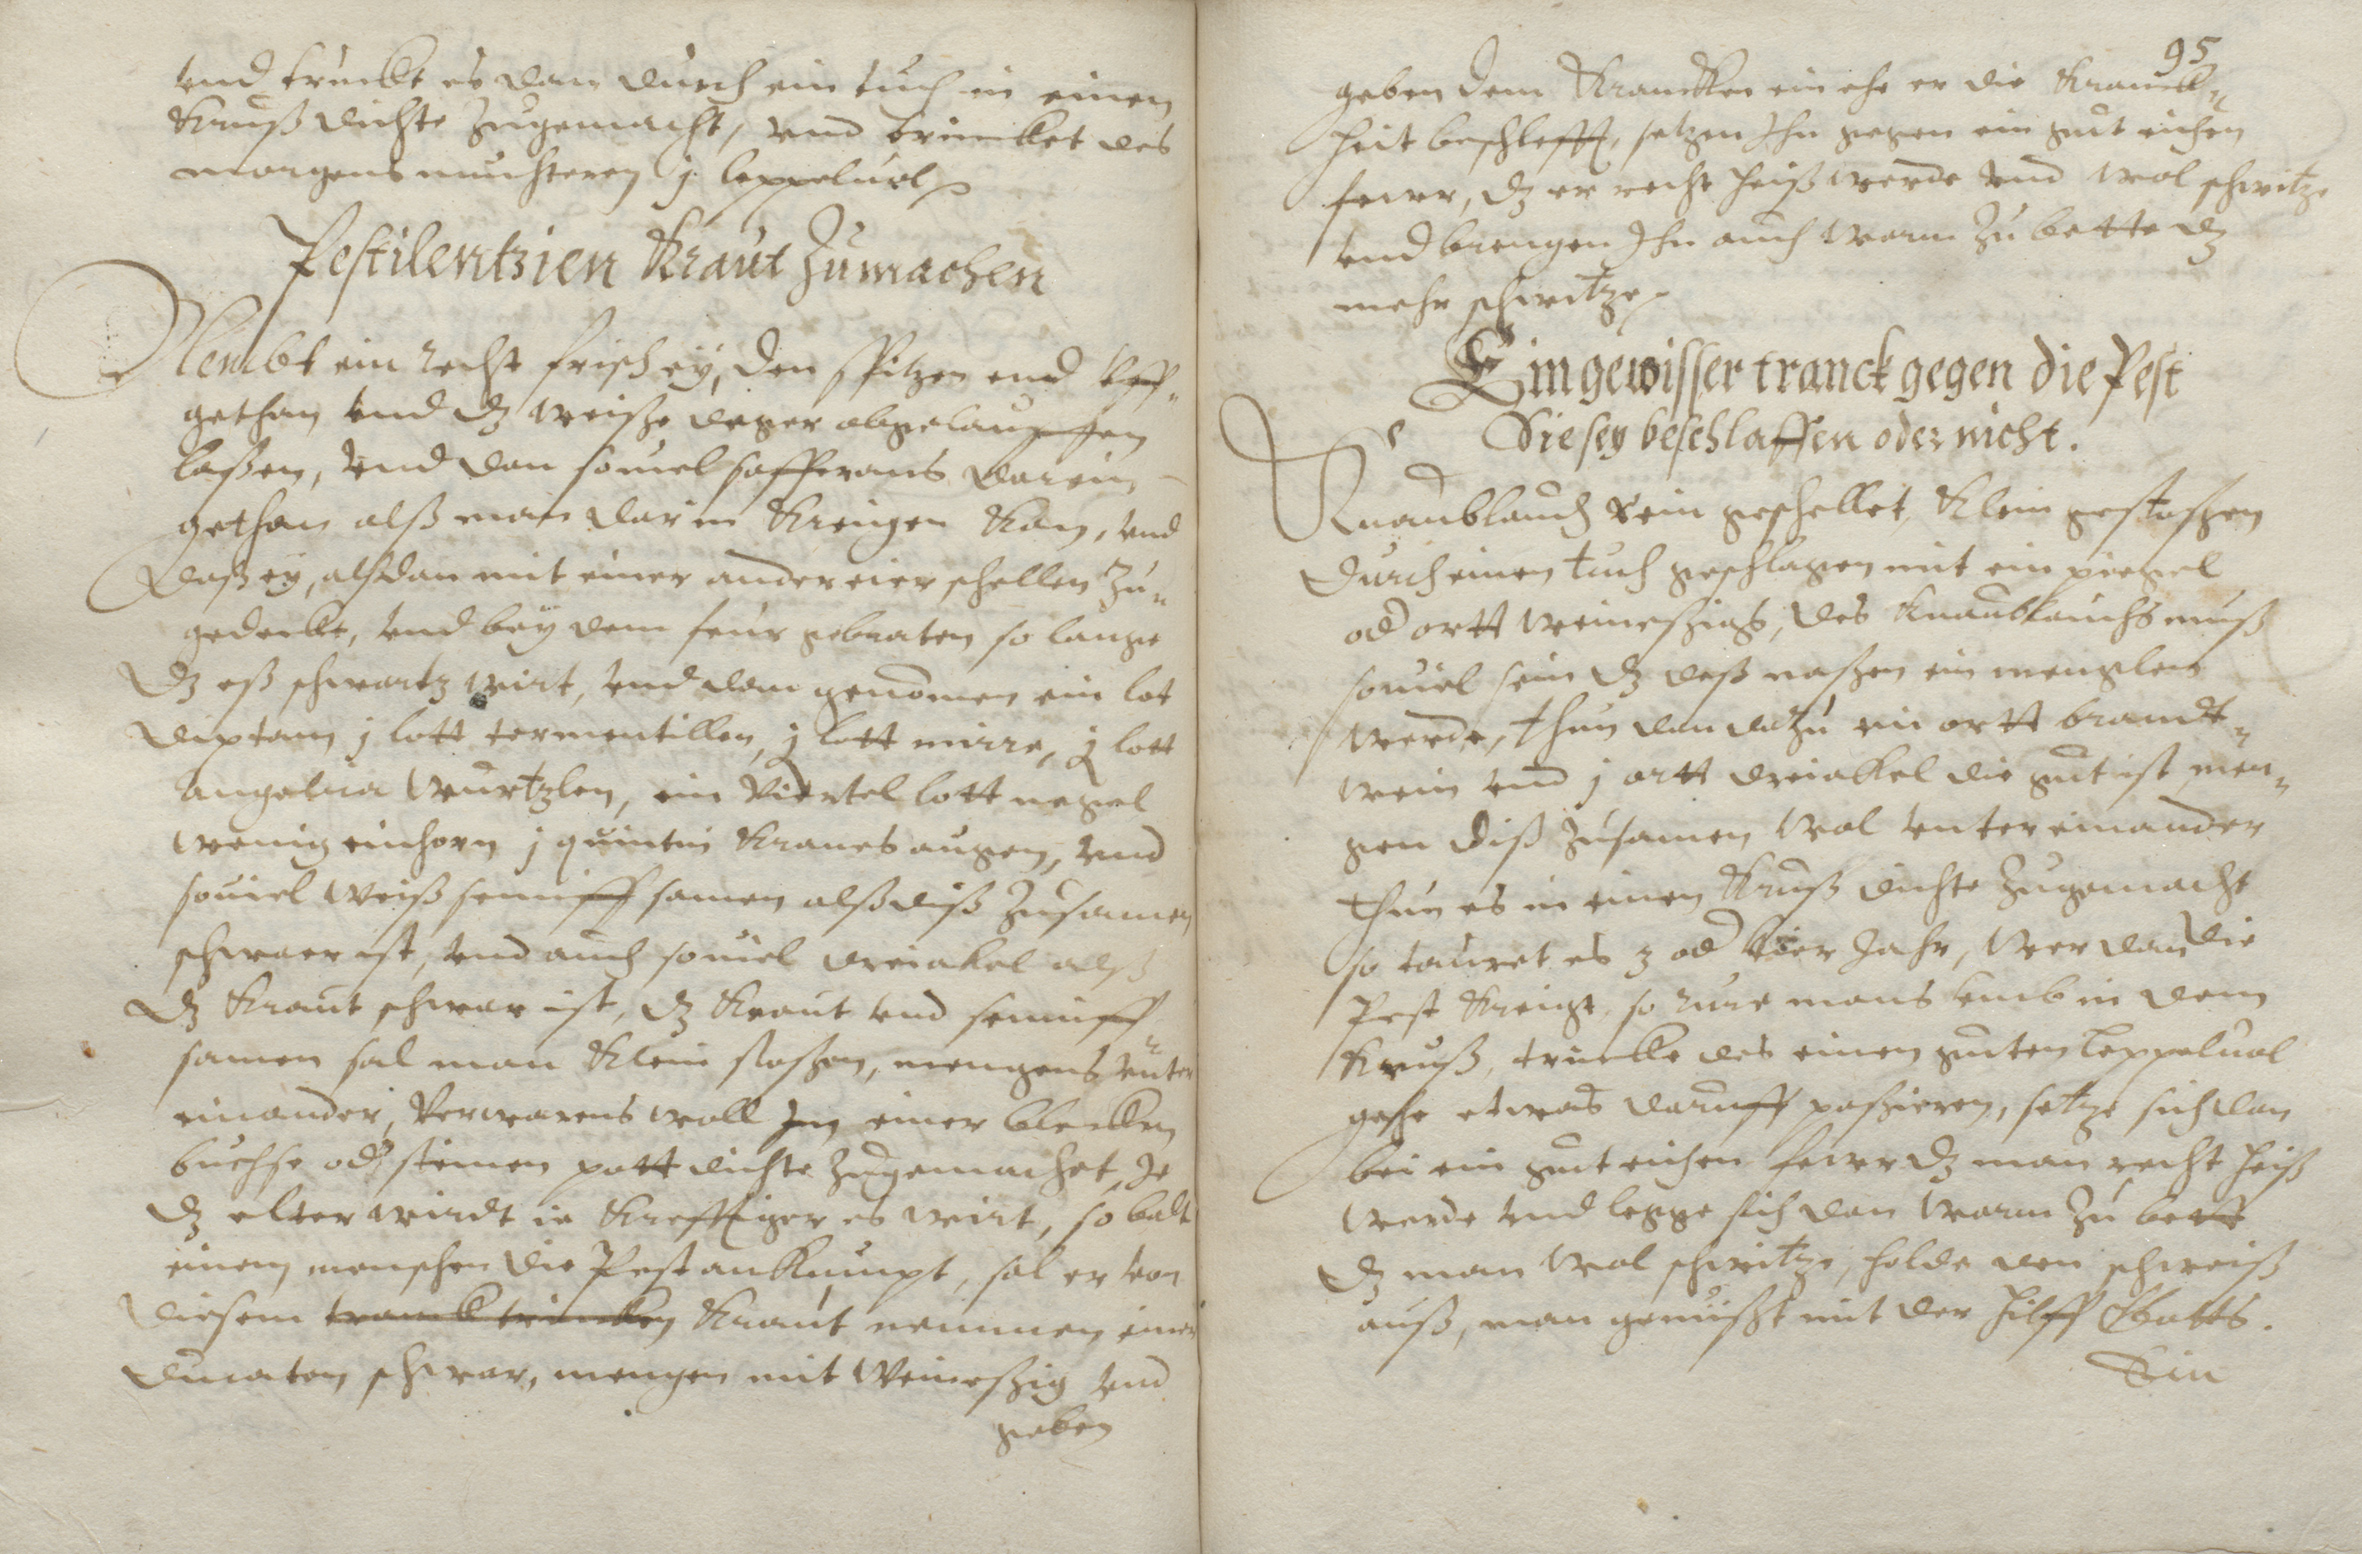 vnd truckt es dan durch ein tuch in einen
Kruß dichte zugemacht, vnd drincket des
morgens nuchteren j leppeluol
Pestilentzien Kraut zu machen
Nembt ein recht frisch eÿ, den spitzen end vff„
gethan vnd dz weiße deger abgelauffen
laßen, vnd dan souiel saffrans darein
gethan alß man darin kreigen kan, vnd
daß eÿ, alßdan mit einer ander eier schellen zu„
gedeckt, vnd beÿ dem feur gebraten so lange
dz eß schwartz wirt, vnd dan genomen ein lot
diptam j lott tormentillen, j lott mirre, j lott
angelica wurtzlen, ein viertel lott negel
wenig einhorn j quintin Kranes augen, vnd
souiel weiß senniff samen alß diß zusamen
schwaer ist, vnd auch souiel dreiakel alß
dz Kraut schwar ist, dz Kraut vnd senniff
samen sal man klein stoßen, mengens vnter
einander, verwarens woll Jn einer blecken
buchse od steinen pott dichte zugemachet, Je
dz elter wirdt ie krefftiger es wirt, so baldt
einem menschen die Pest ankumpt, sal er von
diesem tranck trincken Kraut nemmen einen
ducaten schwar, mengen mit weineßig vnd
geben
95
geben dem Krancken ein ehe er die Kranck„
heit beschlefft, setzen Jhn gegen ein gut eichen
feuer, dz er recht heiß werde vnd wol schwitze
vnd brengen Jhn auch warm zu bette dz
mehr schwitze
Ein gewisser tranck gegen die Pest
Sie sey beschlaffen oder nicht.
Knaublauch rein geschellet, klein gestoßen
durch einen tuch geschlagen mit ein piegel
od ortt weineßigs, des Knaublauchs muß
souiel sein dz deß naßen ein menglen
werde, thun dan datzu ein ortt brandt„
wein vnd j ortt dreiakel die gut ist, men„
gen diß zusamen wol vnter einander
thun es in einen Kruß dichte zugemacht
so tauret es 3 od vier Jahr, Wer dan die
Pest kreigt, so rure mans vmb in dem
Kruß, trincke des einen guten leppeluol
gehe etwas daruff paßieren, setze sich dan
bei ein gut eichen feuer dz man recht heiß
werde vnd legge sich dan warm zu bette
dz man wol schwitze, halde den schweiß
auß, man genießt mit der hilff Gotts.
Ein